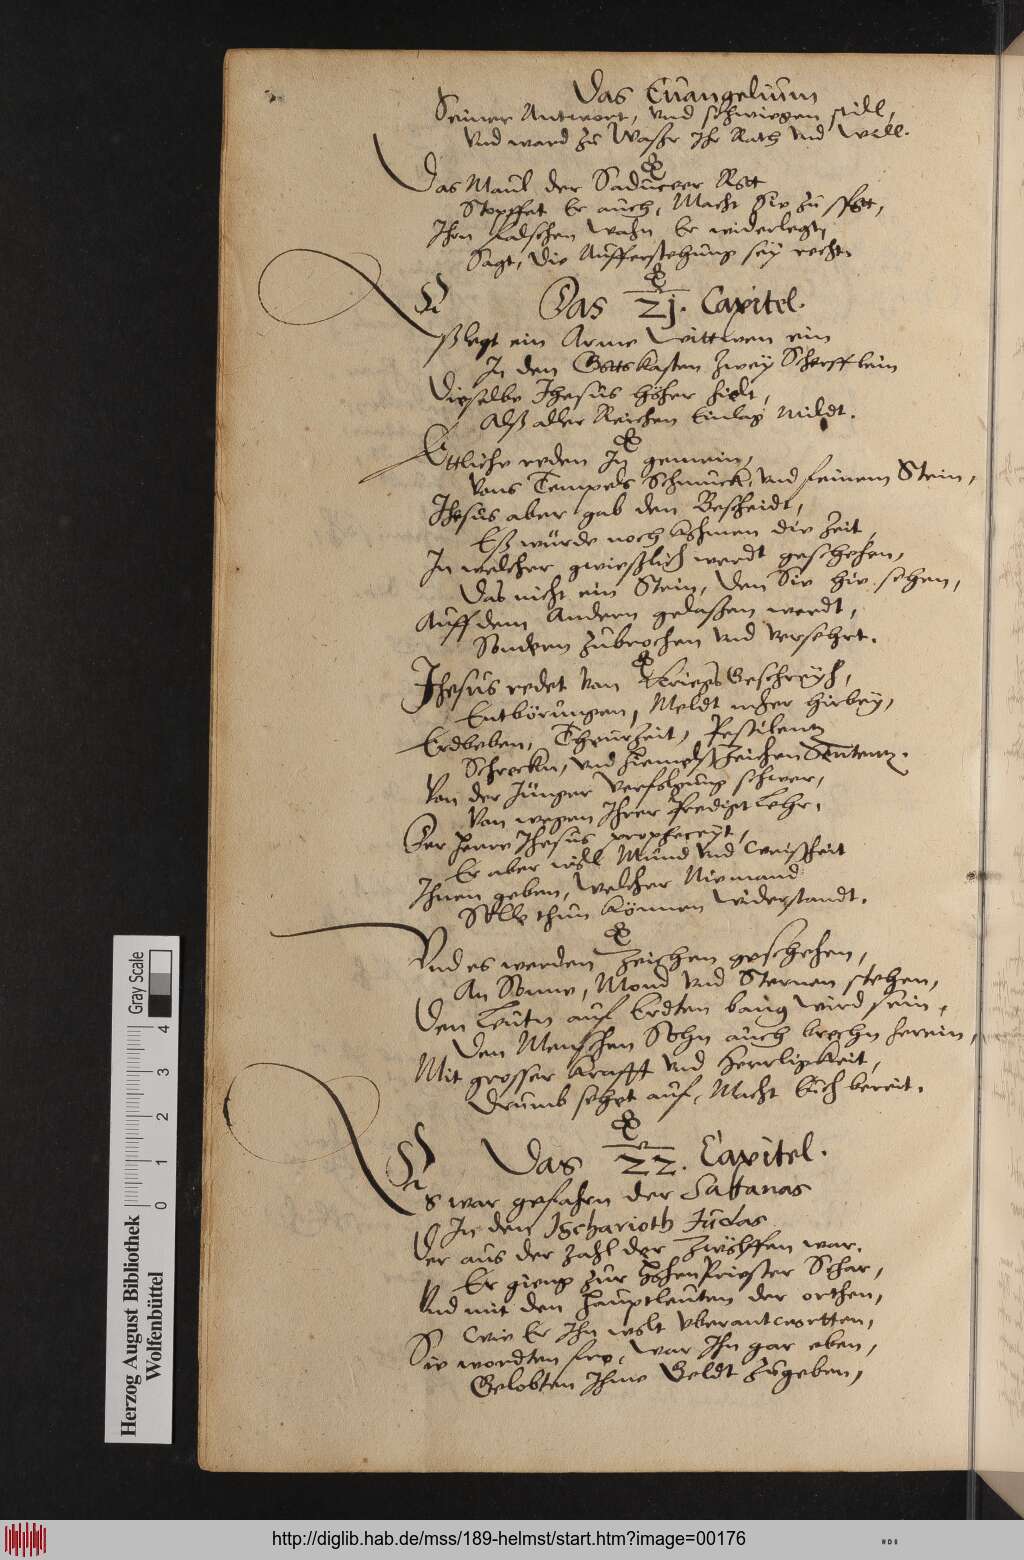 Das Euangelium
Seiner Antwort, vnd schwiegen still,
Vnd ward zu Wasser Ihr Rath vnd Will.
Das Maul der Saduceer Rott
Stopffet Er auch, Macht Sie zu spott,
Ihrn falschen wahn Er widerlegt,
Sagt, die Aufferstehung sey recht.
Das 21. Capitel.
Eß legt ein Arme Wittwen ein
In den Gottskasten zwey Scherfflein
Dieselbe Jhesus höher hielt,
Alß aller Reichen Einlag Mildt.
Ettliche reden In gemein,
Vons Tempels Schmuck, vnd feinem Stein,
Jhesus aber gab den Bescheidt,
Eß würde noch kohmen die Zeit,
In welcher gwießlich werdt geschehen,
Das nicht ein Stein, den Sie hie sehen,
Auff dem Andern gelaßen werdt,
Sondern zubrochen vnd versehrt.
Jhesus redet von Kriegs Geschreyh,
Entbörungen, Meldt mher hirbey,
Erdbeben, Theurzeit, Pestilentz
Schreckn, vnd Hiemelßzeichen
Von der Jünger Verfolgung schwer,
Von wegen Ihrer Predigt Lehr,
Der Herre Jhesus propheceyt,
Er aber will Mund vnd Weißheit
Ihnen geben, Welcher Niemand
Solle thun können widerstandt.
Vnd es werden Zeichen geschehen,
An Sonne, Mond vnd Sternen stehen,
Den Leutn auf Erdten bang wird sein,
Den Menschen Sohn auch brechn herein,
Mit grosser Krafft vnd Herrligkeit,
Drumb sehet auf, Macht Euch bereit.
Das 22. Capitel.
Es war gefahrn der Sattanas
In den Ischarioth Judas
Der aus der Zahl der Zwölffen war.
Er gieng zur HohenPriester Schar,
Vnd mit den Hauptleuten der orthen,
Wie Er Ihn wolt vberantwortten,
Sie wordten fro, war Ihn gar eben,
Gelobten Ihme Geldt zugeben,
Herzog August Bibliothek
Wolfenbüttel
Gray Scale
0 1 2 3 4
http://diglib.hab.de/mss/189-helmst/start.htm?image=00176